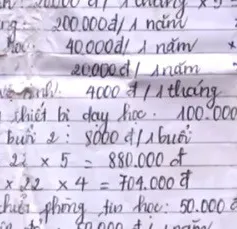 20000 đ/ 1 tháng × 9 =
200.000đ/ 1 năm
40.000đ/ 1 năm
20.000đ/ 1 năm
4000 đ/ 1 tháng
thiết bị dạy học. 100.000
buổi 2: 8000 đ/1 buổi
22 × 5 = 880.000 đ
× 22 × 4 = 704.000 đ
phòng tin học: 50.000 đ